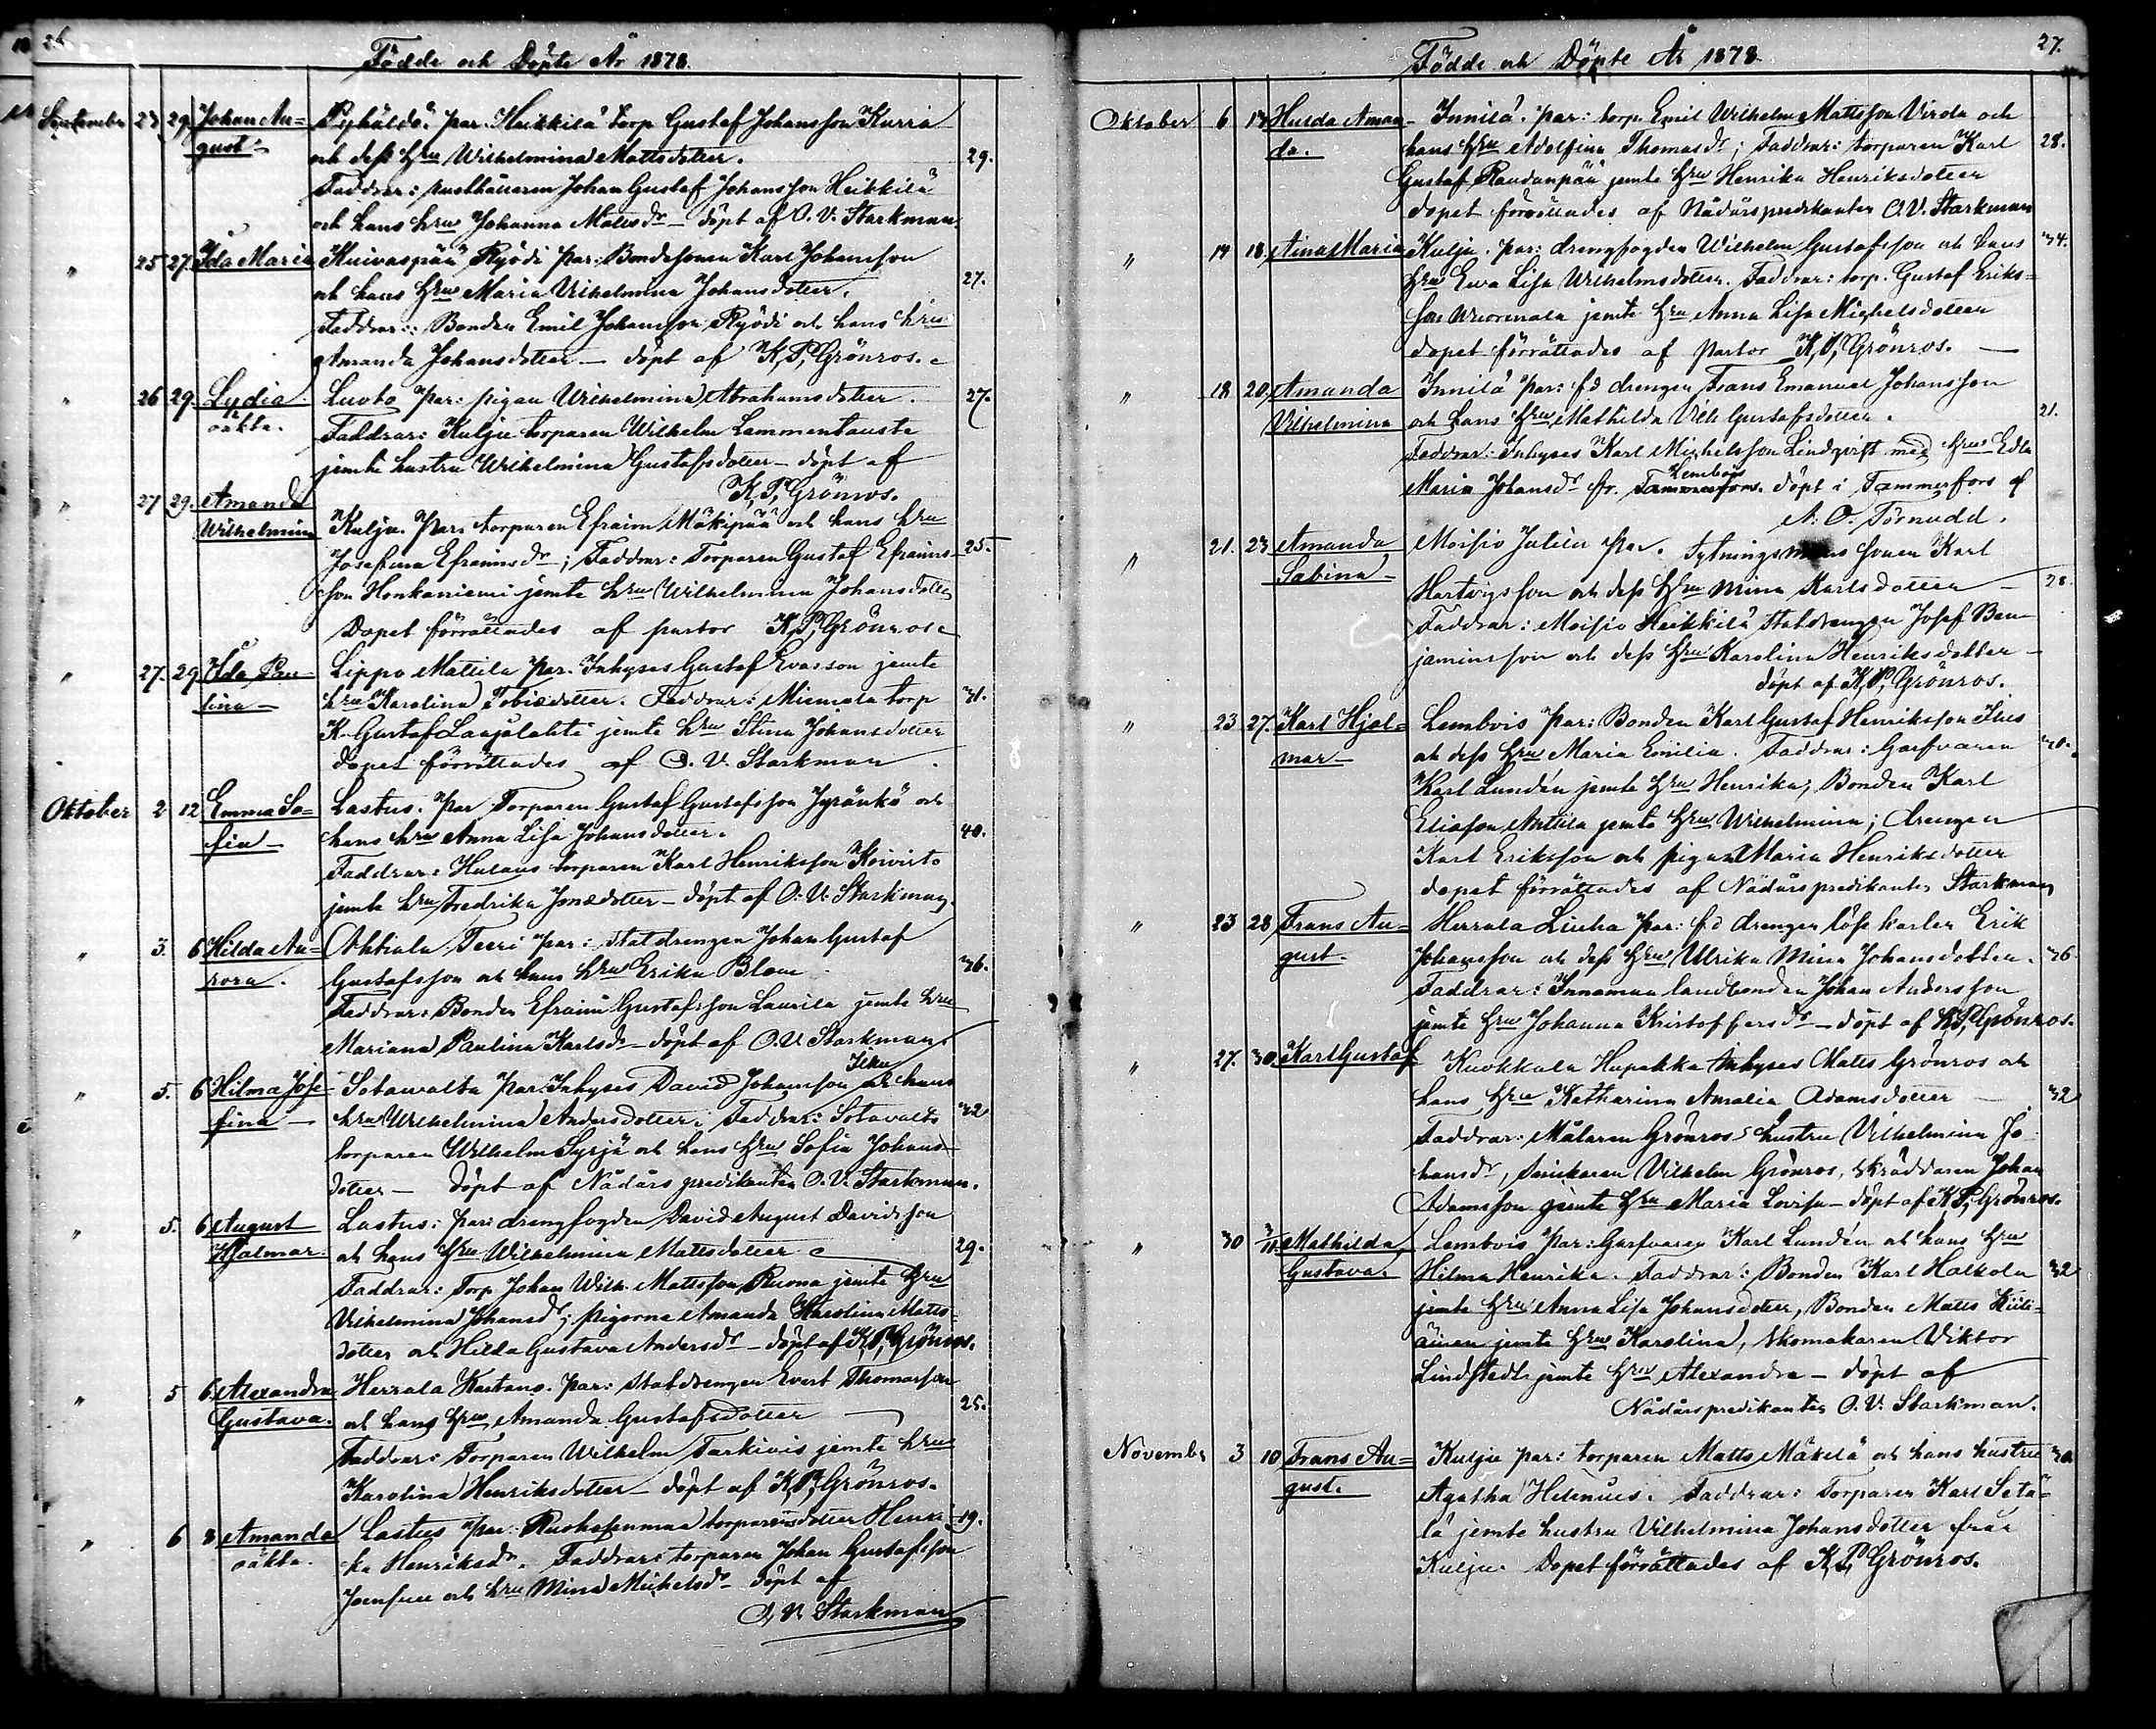 26
Födde och Döpte År 1878.
September 23 29 Johan Au= Pyhäldö. par. Heikkilä torp Gustaf Johansson Kurria
gust och dess Hru Wilhelmina Mattsdotter. 29.
Faddrar: rusthållaren Johan Gustaf Johansson Heikkilä
och hans hru Johanna Mattsdr – döpt af O. V. Starkman.
" 25 27. Ida Maria Kuivaspää Ryödi par: Bondesonen Karl Johansson
och hans Hru Maria Wilhelmina Johansdotter. 27.
Faddrar: Bonden Emil Johansson Ryödi och hans hru
Amanda Johansdotter – döpt af K. P. Grönros.
" 26 29. Lydia Luoto par: pigan Wilhelmina Abrahamsdotter. 27.
oäkta. Faddrar: Kulju torparen Wilhelm Lammentausta
jemte hustru Wilhelmina Gustafsdotter – döpt af
K. P. Grönros.
" 27 29. Amanda
Wilhelmina Kulju. Par: torparen Efraim Mäkipää och hans hru
Josefina Efraimsdr; Faddrar: Torparen Gustaf Efraims- 25.
son Honkaniemi jemte hru Wilhelmina Johansdotter
Dopet förrättades af pastor K. P. Grönros
" 27. 29 Ida Pau- Lippo Mattila par. Inhyses Gustaf Evasson jemte
lina – hru Karolina Tobiedotter. Faddrar: Miemala torp 31.
K. Gustaf Laajalahti jemte hru Stina Johansdotter
dopet förrättades af O. V. Starkman.
Oktober 2 12 Emma So= Lastus. Par Torparen Gustaf Gustafsson Jyränkö och
fia – hans hru Anna Lisa Johansdotter. 40.
Faddrar: Hulaus torparen Karl Henriksson Koivisto
jemte hru Fredrika Jonædotter – döpt af O. V. Starkman.
" 3. 6 Hilda Au= Ahtiala Teeri par: Statdrengen Johan Gustaf
rora. Gustafsson och hans hru Erika Blom 36.
Faddrar: Bonden Efraim Gustafsson Laurila jemte hru
Mariana Paulina Karlsdr – döpt af O. V. Starkman.
" 5. 6 Hilma Jose- Sotavalta par. Inhyses David Johansson Ilku och hans
fina – hru Wilhelmina Andersdotter. Faddrar: Sotavalta 32
torparen Wilhelm Syrjä och hans hru Sofia Johans-
dotter – döpt af Nådårs predikanten O. V. Starkman.
" 5. 6 August Lastus: par: drengfogden David August Davidsson
Hjalmar. och hans Hru Wilhelmina Mattsdotter 29.
Faddrar: Torp Johan Wilh. Mattsson Ruona jemte Hru
Vilhelmina Johansdr; pigorna Amanda Karolina Matts-
dotter och Hilda Gustava Andersdr – döpt af K. P. Grönros.
" 5 6 Alexandra Herrala Kartano. par: Statdrengen Evert Thomasson
Gustava. och hans hru Amanda Gustafsdotter 25.
Faddrar: Torparen Wilhelm Tarkivis jemte hru
Karolina Henriksdotter – döpt af K. P. Grönros.
" 6 8 Amanda Lastus par: Ruohosenmaa torparens dotter Henri- 19.
oäkta. ka Henriksdr. Faddrar: torparen Johan Gustafsson
Joensuu och hru Mina Mickelsdr – döpt af
O. V. Starkman
27.
Födde och Döpte År 1878.
Oktober 6 13 Hulda Aman- Innilä. par: torp. Emil Wilhelm Mattsson Virola och
da. hans Hru Adolfina Thomasdr; Faddrar: torparen Karl 28.
Gustaf Raudanpää jemte Hru Henrika Henriksdotter
dopet förrättades af Nådårspredikanten O. V. Starkman
" 14 18 Aina Maria Kulju. par: drengfogden Wilhelm Gustafsson och hans 34.
Hru Eva Lisa Wilhelmsdotter. Faddrar: torp. Gustaf Eriks=
son Wuorenala jemte Hru Anna Lisa Michelsdotter
dopet förrättades af pastor K. P. Grönros. –
" 18 20 Amanda Innilä par: f.d drengen Frans Emanuel Johansson
Vilhelmina och hans Hru Mathilda Vilh. Gustafsdotter. 21.
Faddrar: Inhyses Karl Michelsson Lindqvist med Hru Edla
Maria Johansdr fr. Lembois. döpt i Tammerfors af
A. O. Törnudd.
" 21. 23 Amanda Moisio Jutila par. Sytningsmans sonen Karl
Sabina – Hartvigsson och dess Hru Mina Karlsdotter – 28.
Faddrar: Moisio Heikkilä Statdrengen Josef Ben-
jaminsson och dess Hru Karolina Henriksdotter –
döpt af K. P. Grönros.
" 23 27. Karl Hjal= Lembois par: Bonden Karl Gustaf Henriksson Ilus
mar – och dess Hru Maria Emilia. Faddrar: Garfvaren 30.
Karl Lundén jemte Hru Henrika; Bonden Karl
Eliasson Anttila jemte Hru Wilhelmina; drengen
Karl Eriksson och pigan Maria Henriksdotter
dopet förrättades af Nådårspredikanten Starkman
" 23 28 Frans Au= Herrala Liuha par: f.d drengen lösekarlen Erik
gust. Johansson och dess Hru Ulrika Mina Johansdotter. 36
Faddrar: Innamaa landbonden Johan Andersson
jemte Hru Johanna Kristoffersdr – döpt af K. P. Grönros.
" 27. 30 Karl Gustaf Kuokkala Hupakka Inhyses Matts Grönros och
hans Hru Katharina Amalia Adamsdotter – 32
Faddrar: Målaren Grönros's hustru Vilhelmina Jo-
hansdr, snickaren Vilhelm Grönros, Skräddaren Johan
Adamsson jemte Hru Maria Lovisa – döpt af K. P. Grönros.
" 30 3/11 Mathilda Lembois Par: Garfvaren Karl Lundén och hans Hru
Gustava. Hilma Henrika. Faddrar: Bonden Karl Halkola 32
jemte Hru Anna Lisa Johansdotter, Bonden Matts Kiili-
äinen jemte Hru Karolina, Skomakaren Viktor
Lindstedt jemte Hru Alexandra – döpt af
Nådårspredikanten O. V. Starkman.
November 3 10 Frans Au= Kulju par: torparen Matts Mäkelä och hans hustru 30
gust. Agatha Helenius. Faddrar: Torparen Karl Setä-
lä jemte hustru Vilhelmina Johansdotter från
Kulju. Dopet förrättades af K. P. Grönros.